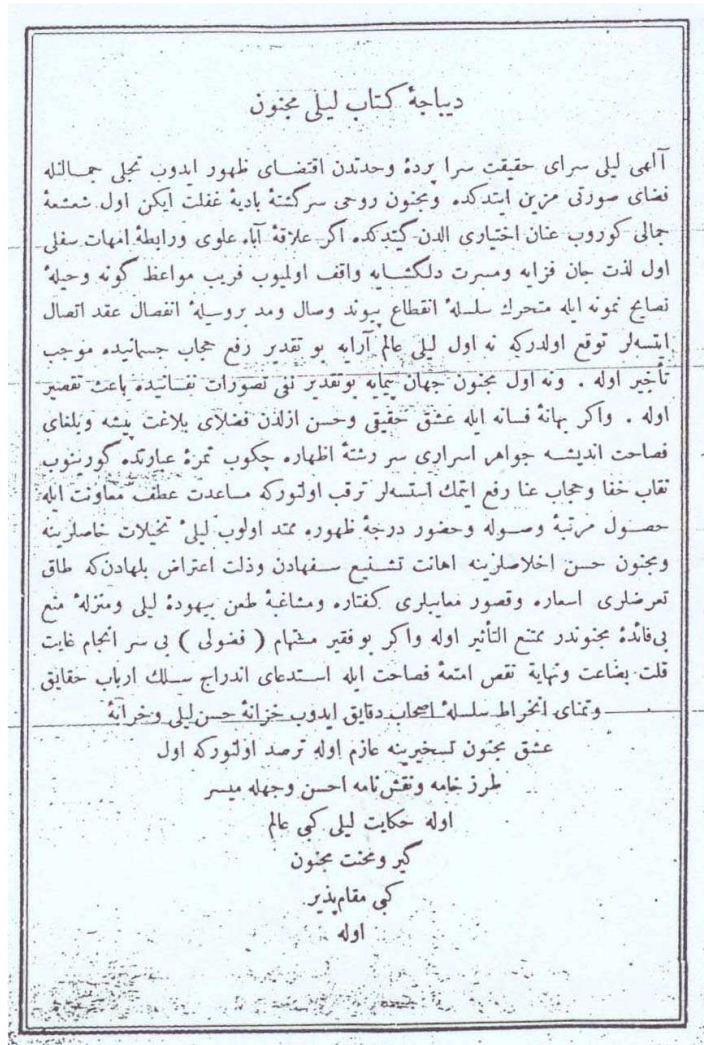 ديباجهٔ كتاب ليلى مجنون
آلهى ليلى سراى حقيقت سرا پردهٔ وحدتدن اقتضاى ظهور ايدوب تجلى جمالنله
فضاى صورتى مزين ايتدكده ومجنون روحى سركشتهٔ باديهٔ غفلت ايكن اول شعشعهٔ
جمالى كوروب عنان اختيارى الدن كيتدكده اكر علاقهٔ آباء علوى ورابطهٔ امهات سفلى
اول لذت جان فزايه ومسرت دلكشايه واقف اولميوب فريب مواعظ كونه وحيلهٔ
نصايح نمونه ايله متحرك سلسلهٔ انقطاع پيوند وصال ومدبر وسيلهٔ انفصال عقد اتصال
ايتسه‌لر توقع اولدركه نه اول ليلى عالم آرايه بو تقدير رفع حجاب جسمانيده موجب
تأخير اوله . ونه اول مجنون جهان پيمايه بوتقدير نفى تصورات نفسانيده باعث تقصير
اوله . واكر بهانهٔ فسانه ايله عشق حقيقى وحسن ازلدن فضلاى بلاغت پيشه وبلغاى
فصاحت انديشه جواهر اسرارى سر رشتهٔ اظهاره چكوب تمزهٔ عبارتده كورينوب
نقاب خفا وحجاب عنا رفع ايتمك استسه‌لر ترقب اولنوركه مساعدت عطف معاونت ايله
حصول مرتبهٔ وصوله وحضور درجهٔ ظهوره ممتد اولوب ليلىٔ تخيلات خاصلرينه
ومجنون حسن اخلاصلرينه اهانت تشنيع سفهادن وذلت اعتراض بلهادن‌كه طاق
تعرضلرى اسعاره وقصور معايبلرى كفتاره ومشاغبهٔ طعن بيهودهٔ ليلى ومنزلهٔ منع
بى‌فائدهٔ مجنوندر ممتنع التأثير اوله واكر بو فقير مستهام ( فضولى ) بى سر انجام غايت
قلت بضاعت ونهاية نقص امتعهٔ فصاحت ايله استدعاى اندراج سلك ارباب حقايق
وتمناى انخراط سلسلهٔ اصحاب دقايق ايدوب خزانهٔ حسن ليلى وخرابهٔ
عشق مجنون تسخيرينه عازم اوله ترصد اولنوركه اول
طرز خامه ونقش نامه احسن وجهله ميسر
اوله حكايت ليلى كبى عالم
گير ومحنت مجنون
كبى مقام‌پذير
اوله